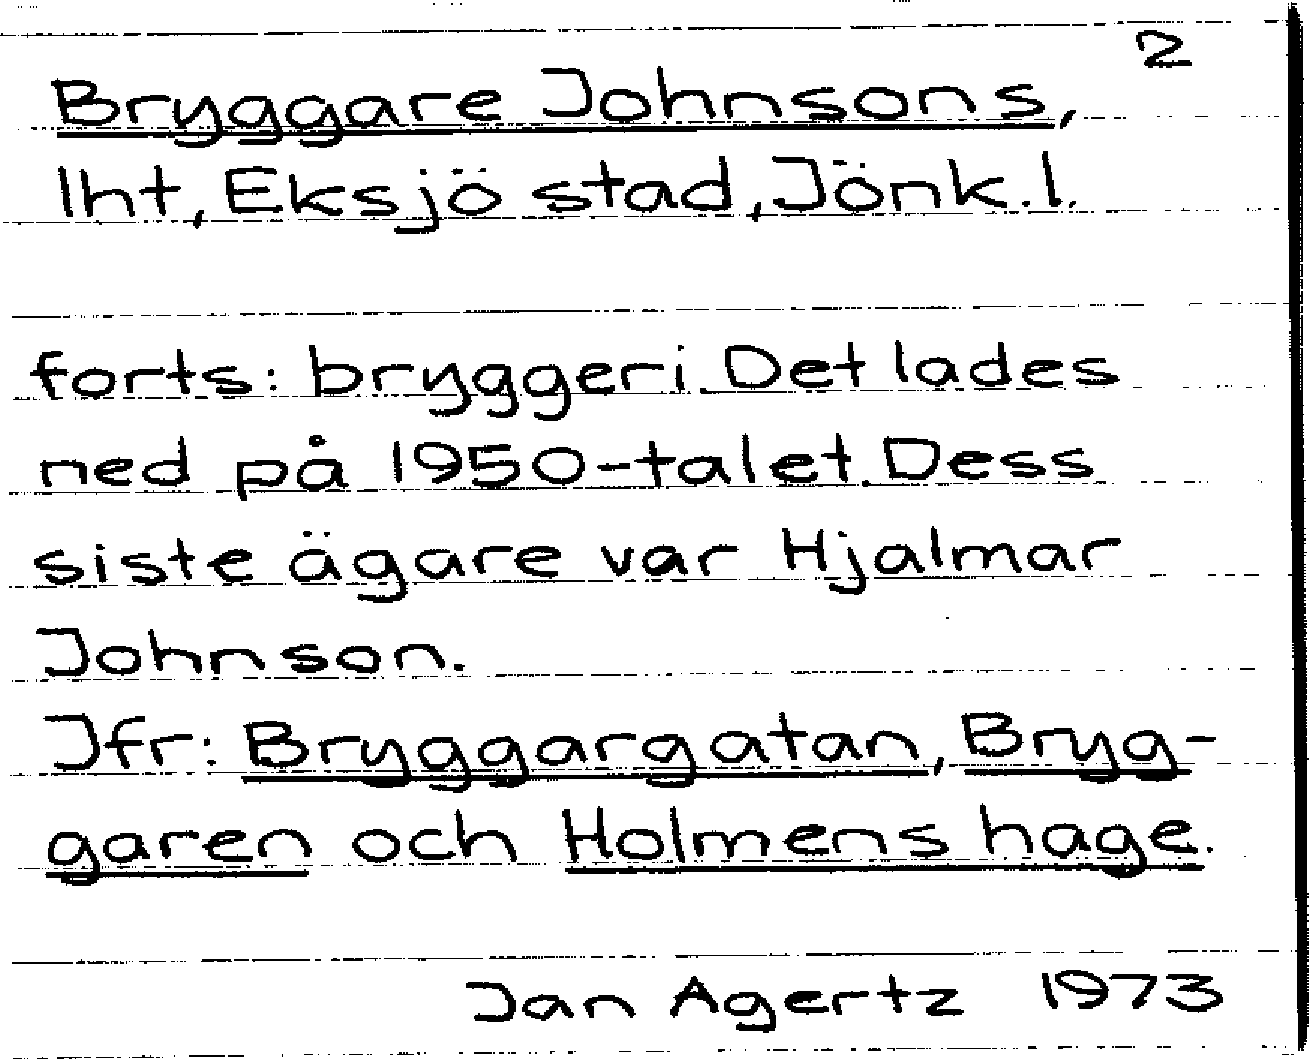 2
Bryggare Johnsons,
lht, Eksjö stad, Jönk.l.
forts: bryggeri. Det lades
ned på 1950-talet. Dess
siste ägare var Hjalmar
Johnson.
Jfr: Bryggargatan, Bryg-
garen och Holmens hage.
Jan Agertz 1973